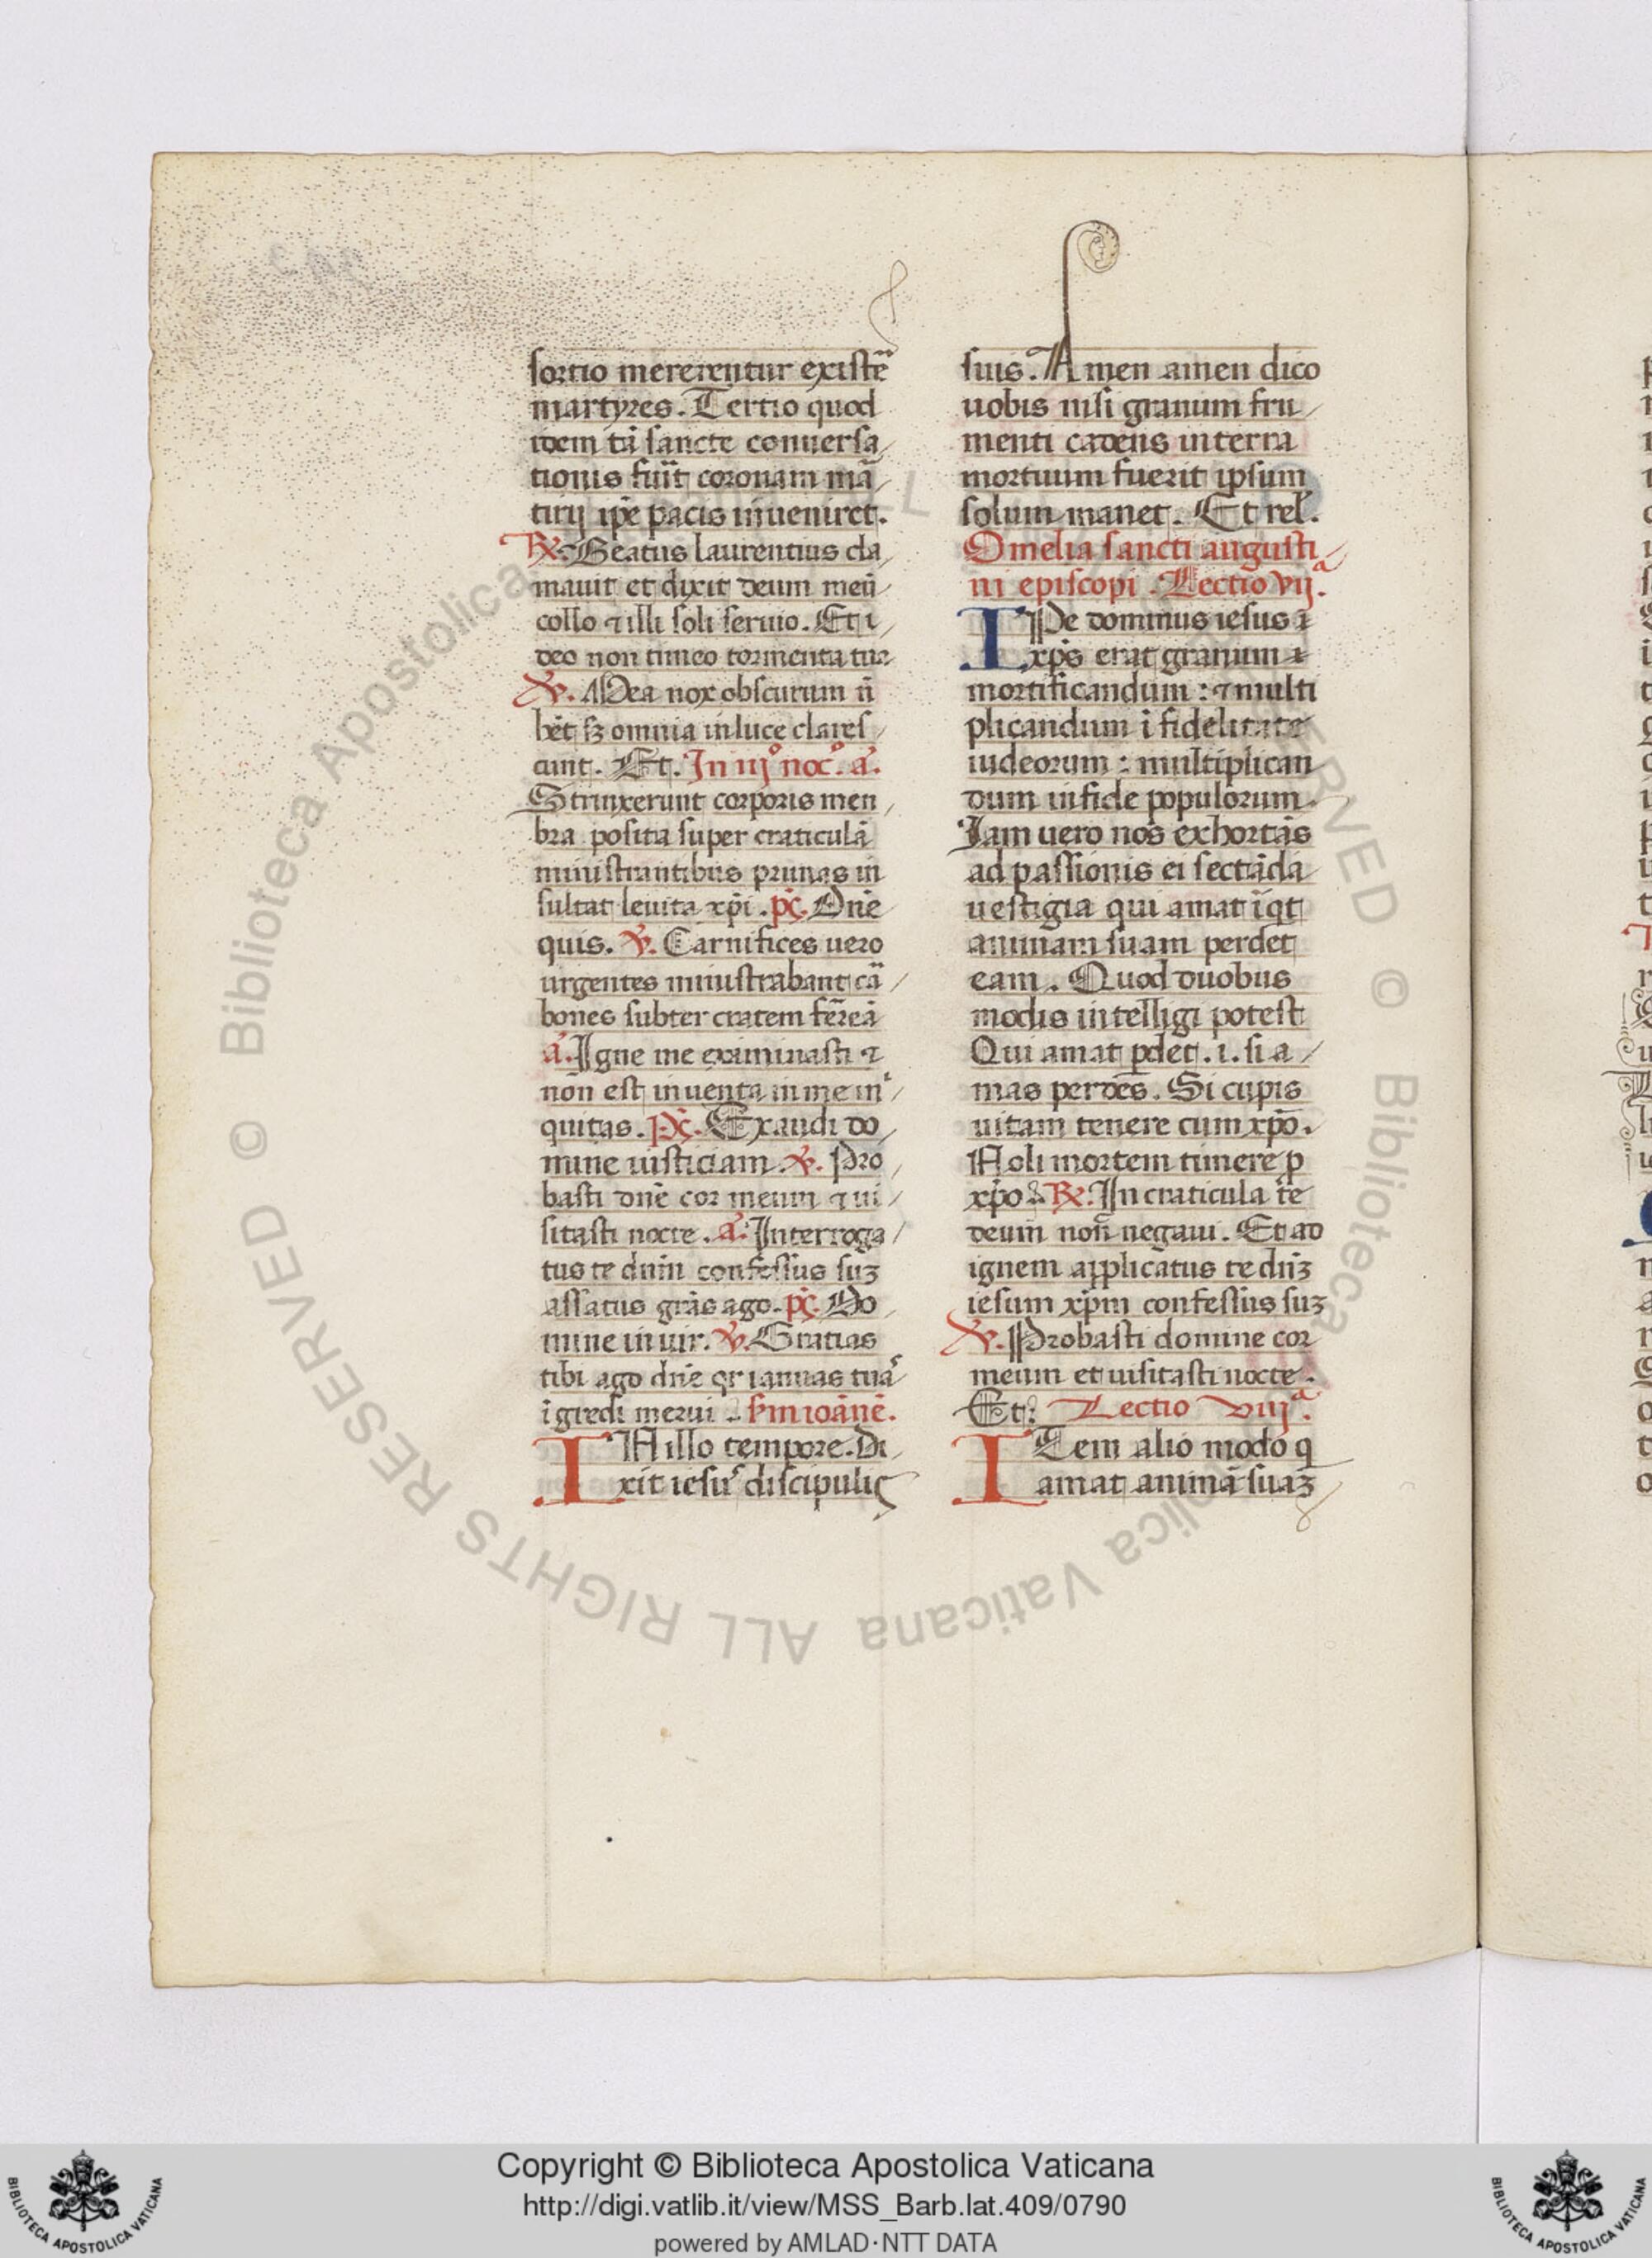 sortio mererentur existē
martyres. Tertio quod
idem tā sancte conuersa
tionis fuīt coronam mā
tirij ip̄e pacis inueniret.
℞. Beatus laurentius cla
mauit et dixit deum meū
collo ⁊ illi soli seruio. Et i
deo non timeo tormenta tua
℣. Mea nox obscurum n̄
hēt sꝫ omnia in luce clares
cunt. Et. In iijº nocº. a.
Strinxerunt corporis men
bra posita super craticulā
ministrantibus prunas in
sultat leuita xp̄i. p̄s. Dn̄e
quis. ℣. Carnifices uero
urgentes ministrabant cā
bones subter cratem ferreā
a. Igne me examinasti ⁊
non est inuenta in me ini
quitas. p̄s. Exaudi do
mine iusticiam. ℣. Pro
basti dn̄e cor meum ⁊ ui
sitasti nocte. a. Interroga
tus te dn̄m confessus suꝫ
assatus grās ago. p̄s. Do
mine in uir. ℣. Gratias
tibi ago dn̄e qr ianuas tuas
īgredi merui. s̄m ioānē.
IN illo tempore. Di
xit iesus discipulis
suis. Amen amen dico
uobis nisi granum fru
menti cadens in terra
mortuum fuerit ipsum
solum manet. Et rel.
Omelia sancti augusti
ni episcopi. Lectio vijª.
IPse dominus iesus
xp̄s erat granum
mortificandum: ⁊ multi
plicandum ī fidelitate
iudeorum: multiplican
dum in fide populorum.
Iam uero nos exhortās
ad passionis ei sectāda
uestigia qui amat īqt
animam suam perdet
eam. Quod duobus
modis intelligi potest
Qui amat ꝑdet. i. si a
mas perdes. Si cupis
uitam tenere cum xp̄o.
Noli mortem timere ꝑ
xp̄o. ℞. In craticula te
deum non negaui. Et ad
ignem applicatus te dn̄ꝫ
iesum xp̄m confessus suꝫ
℣. Probasti domine cor
meum et uisitasti nocte.
Et. Lectio viijª.
ITem alio modo q
amat animā suaꝫ
Copyright © Biblioteca Apostolica Vaticana
http://digi.vatlib.it/view/MSS_Barb.lat.409/0790
powered by AMLAD·NTT DATA
BIBLIOTECA APOSTOLICA VATICANA
BIBLIOTECA APOSTOLICA VATICANA
© Biblioteca Apostolica Vaticana ALL RIGHTS RESERVED